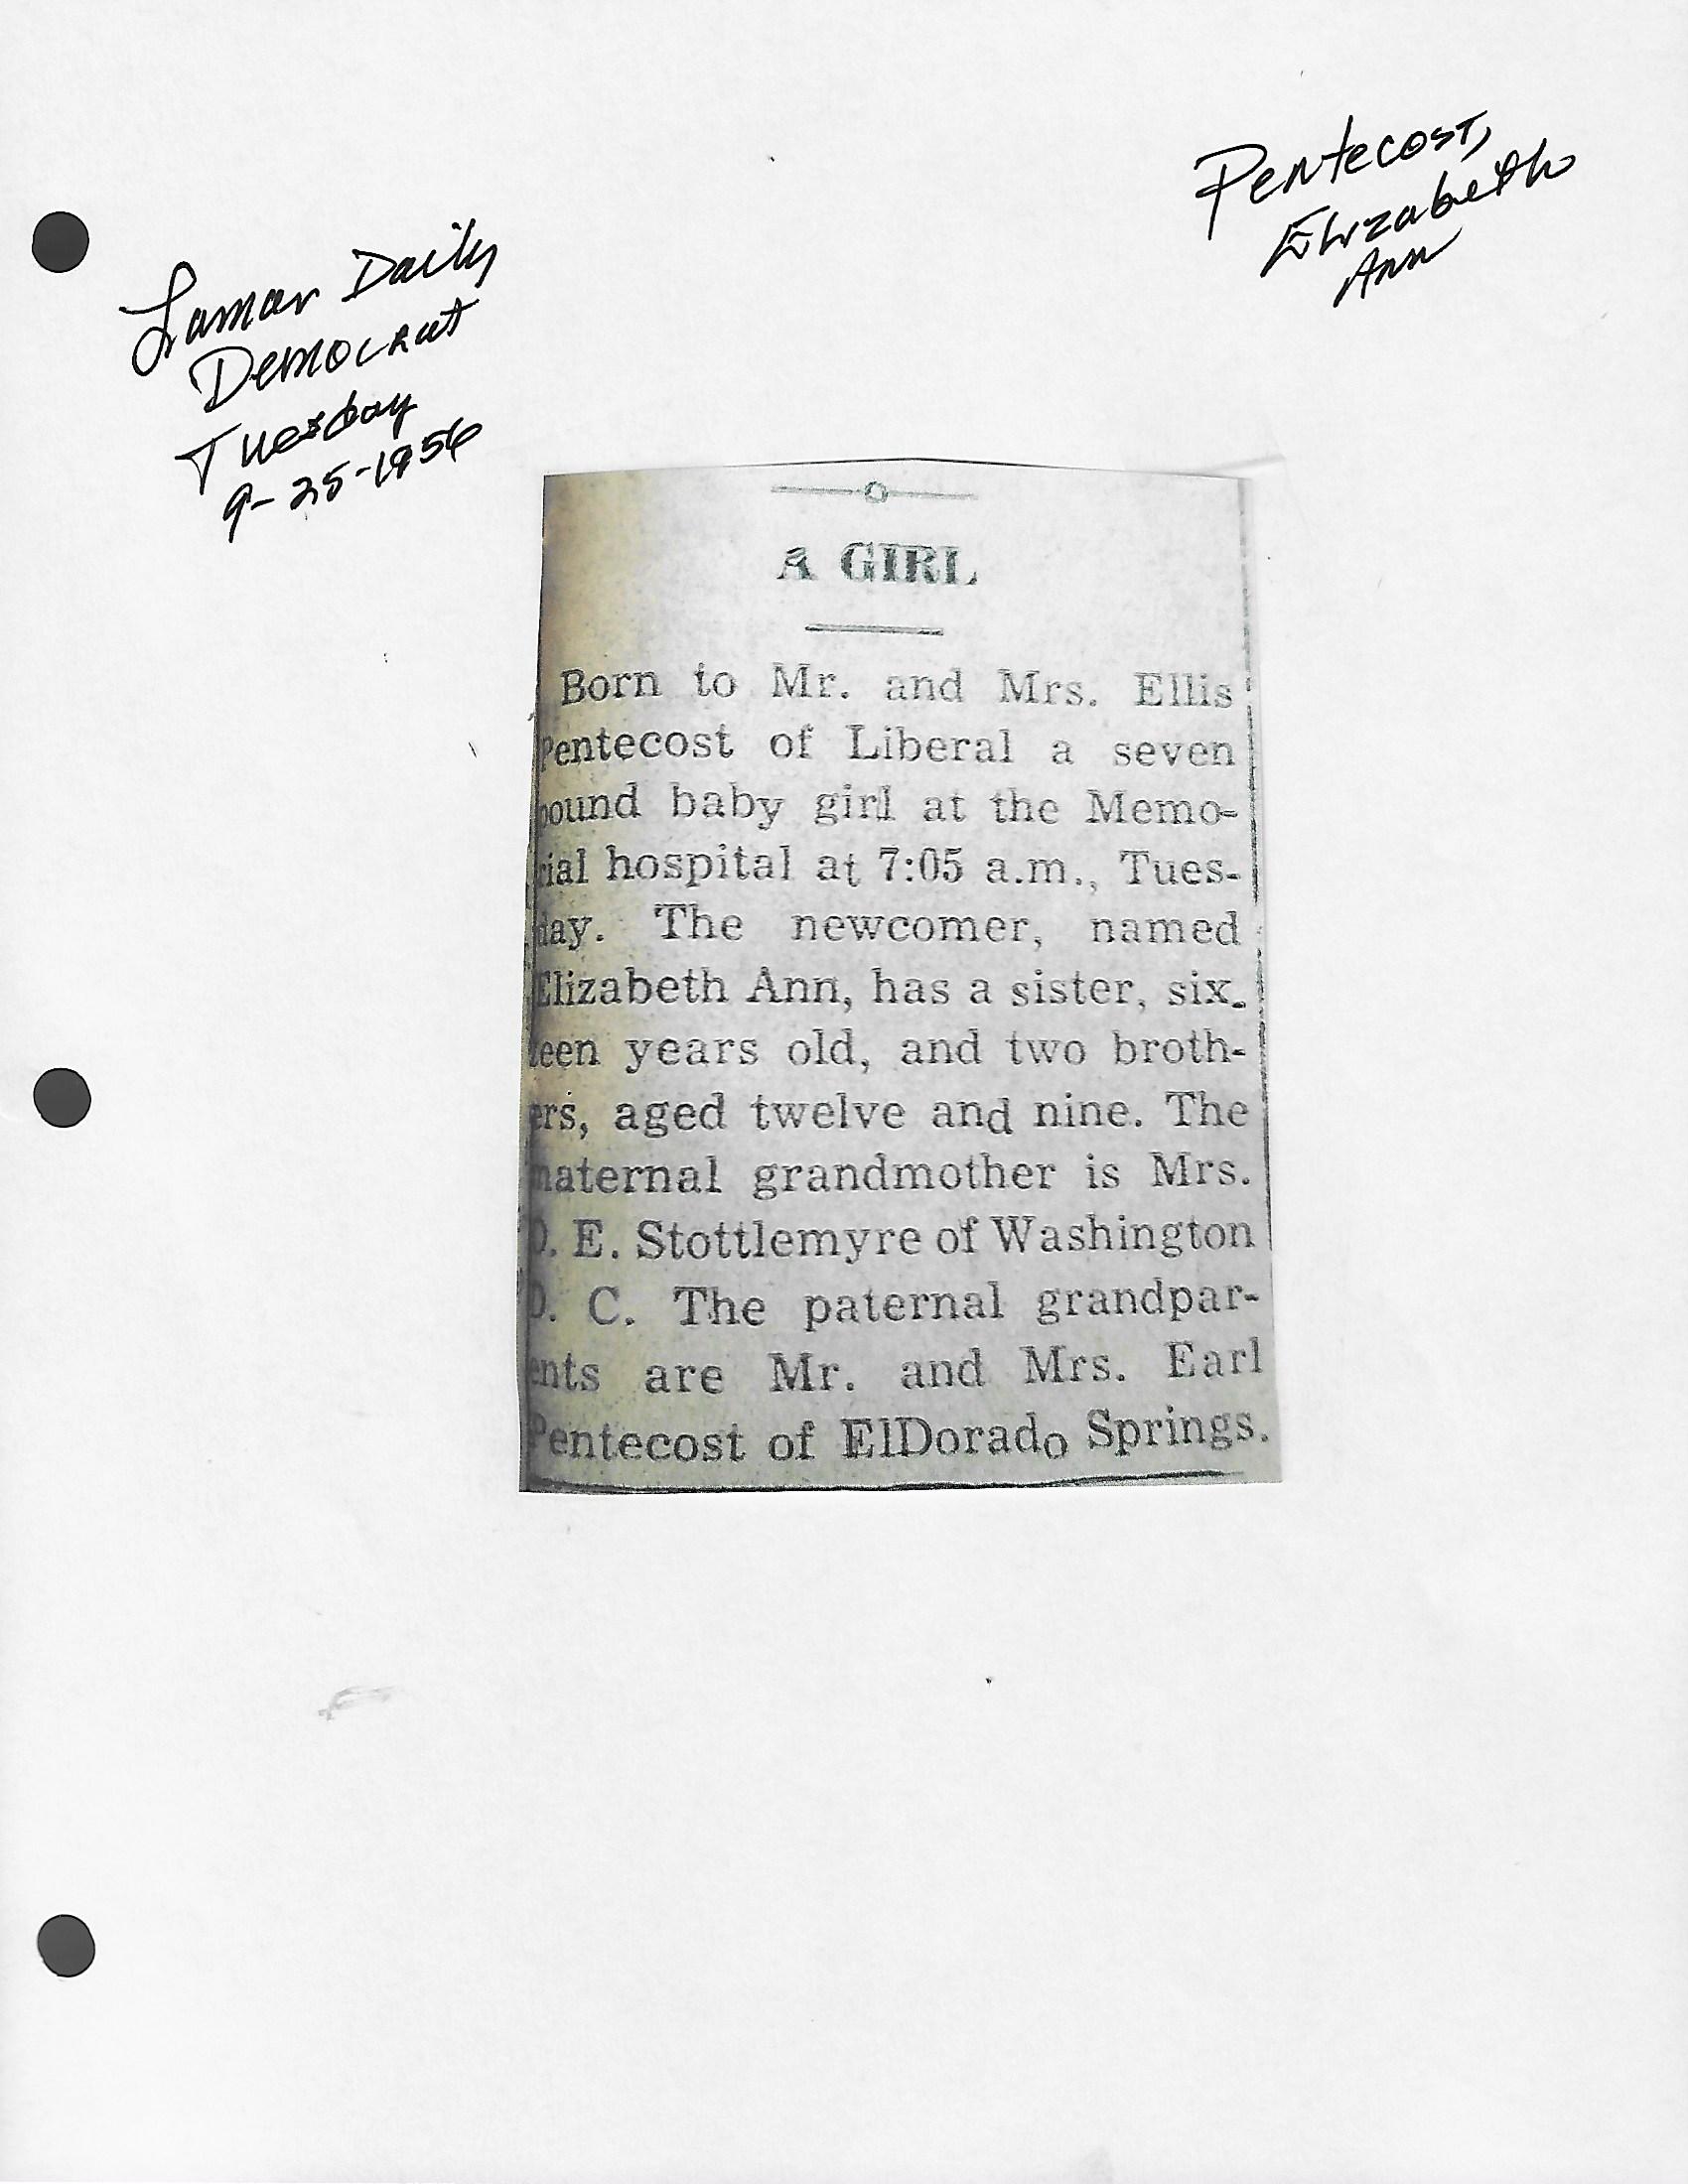 Pentecost,
Elizabeth
Ann
Lamar Daily
Democrat
Tuesday
9-25-1956
A GIRL
Born to Mr. and Mrs. Ellis
Pentecost of Liberal a seven
pound baby girl at the Memo-
rial hospital at 7:05 a.m., Tues-
day. The newcomer, named
Elizabeth Ann, has a sister, six-
teen years old, and two broth-
ers, aged twelve and nine. The
maternal grandmother is Mrs.
O. E. Stottlemyre of Washington
D. C. The paternal grandpar-
ents are Mr. and Mrs. Earl
Pentecost of ElDorado Springs.